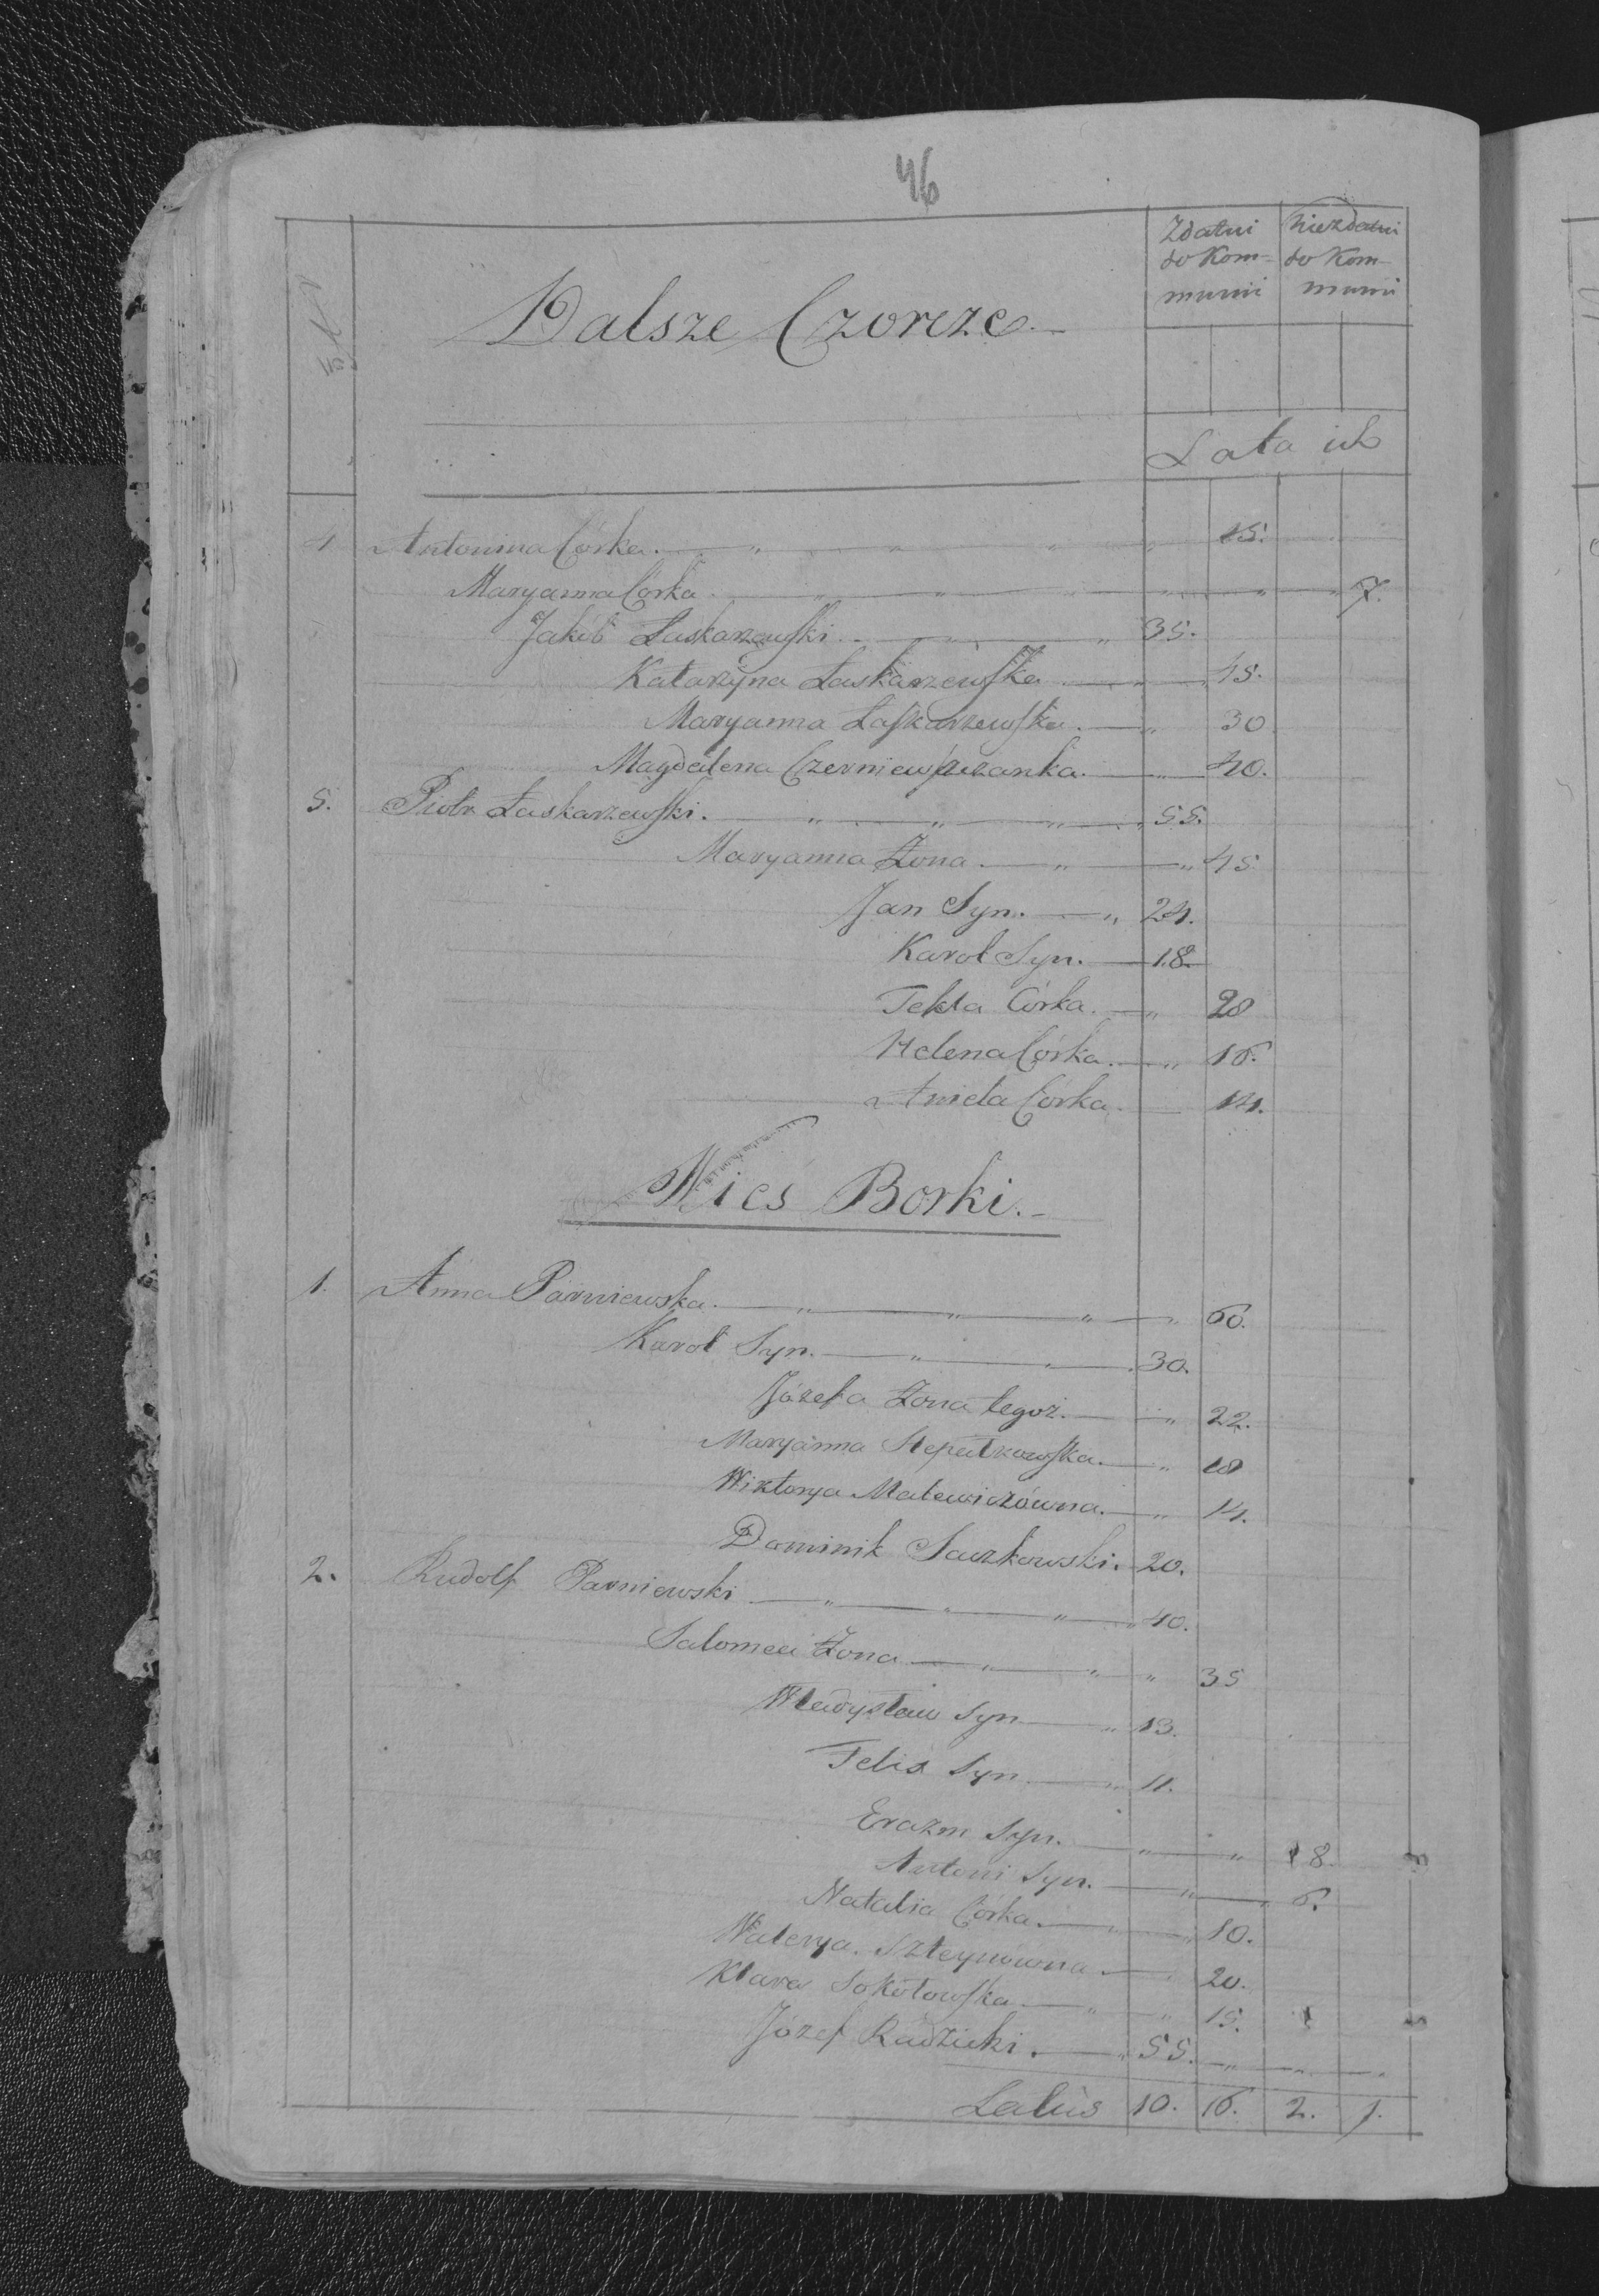 46
Zdatni do Kom= munii
niezdatni do Kom- munii
Dalsze Czorcze
Lata ich
4 Antonina Córka. 15.
Maryanna Córka. 7.
Jakób Łaskarzewski 35.
Katarzyna Łaskarzewska 45.
Maryanna Łaskarzewska. 30
Magdalena 40.
5. Piotr Łaskarzewski. 55.
Maryanna Żona 45
Jan Syn. 24.
Karol Syn. 18.
Tekla Córka. 20
Helena Córka. 16.
Aniela Córka. 14.
Wies Borki.
1. Anna Parniewska. 60.
Karol Syn. 30.
Józefa Żona tegoż. 22.
Maryanna 18
Wiktorya Malewiczówna. 14.
Dominik Saczkowski. 20.
2. Rudolf Parniewski 40.
Salomea Żona 35
Władysław Syn 13.
Felix Syn. 11.
Erazm Syn. 8.
Antoni Syn. 6.
Natalia Córka. 10.
Walerya Szteynowna 20.
Klara Sokołowska 15.
Józef Radzicki. 55.
Latus 10. 16. 2. 1.